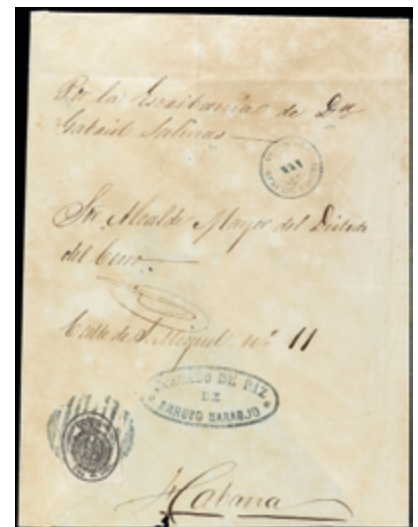 Por la Escribanía de Dn
Gabriel Salinas
Sor Alcalde Mayor del Distrito
del Cerro.
Calle de S. Miguel nº 11
JUZGADO DE PAZ
DE
ARROYO NARANJO
Habana